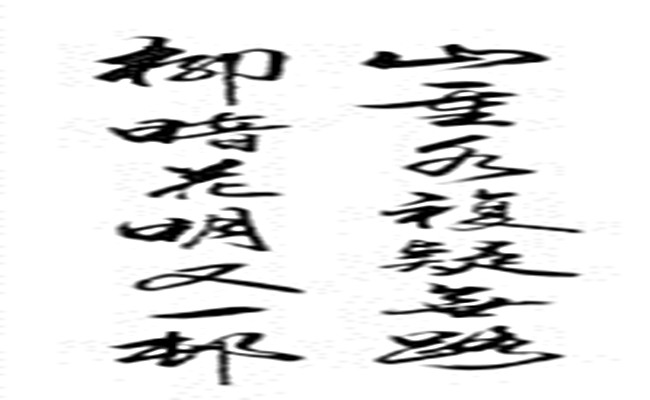 山重水複疑無路
柳暗花明又一邨